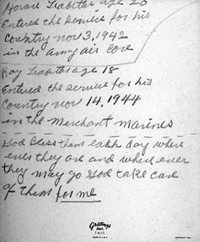 Horace Ledbetter age 20
Entered the service for his
country nov 3, 1942
in the army air Core
Ray age 18
Entered the service for his
Country nov 14, 1944
in the Merchant Marines
God bless them each day where
ever they are and where ever
they may go God take care
of them for me